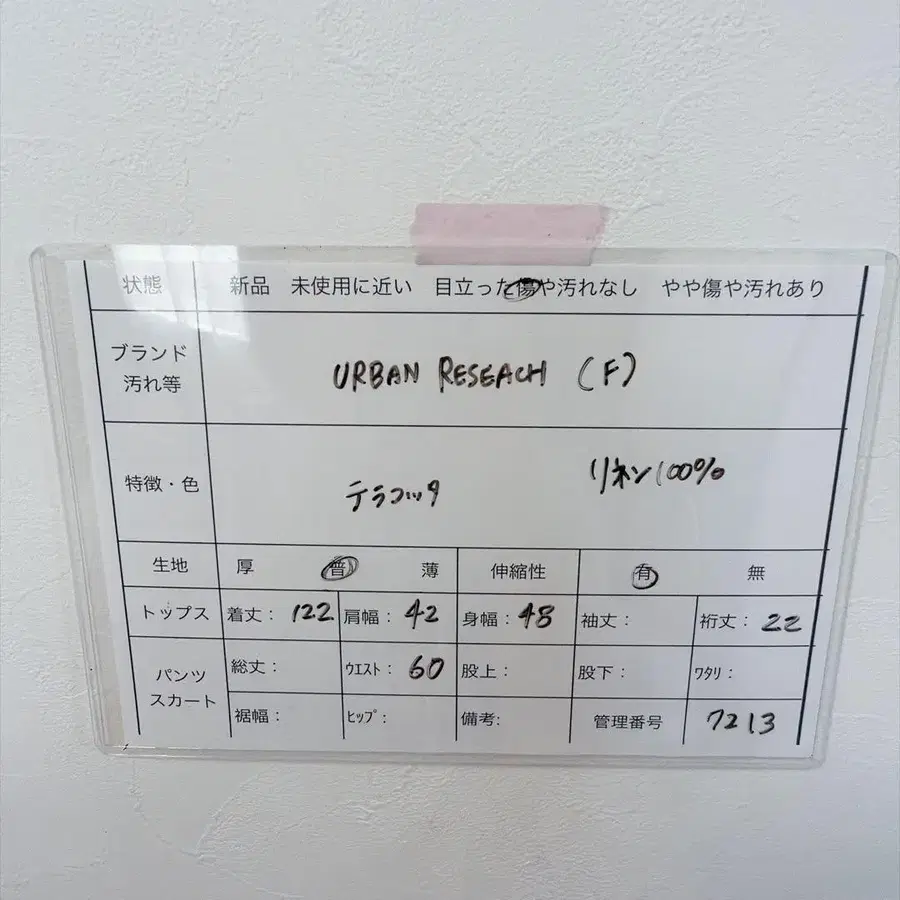 状態 新品 未使用に近い 目立った傷や汚れなし やや傷や汚れあり
ブランド
汚れ等
URBAN RESEACH (F)
特徴・色
テラコッタ
リネン100%
生地 厚 普 薄 伸縮性 有 無
トップス 着丈: 122 肩幅: 42 身幅: 48 袖丈: 裄丈: 22
パンツ
スカート
総丈: ウエスト: 60 股上: 股下: ワタリ:
裾幅: ヒップ: 備考: 管理番号 7213